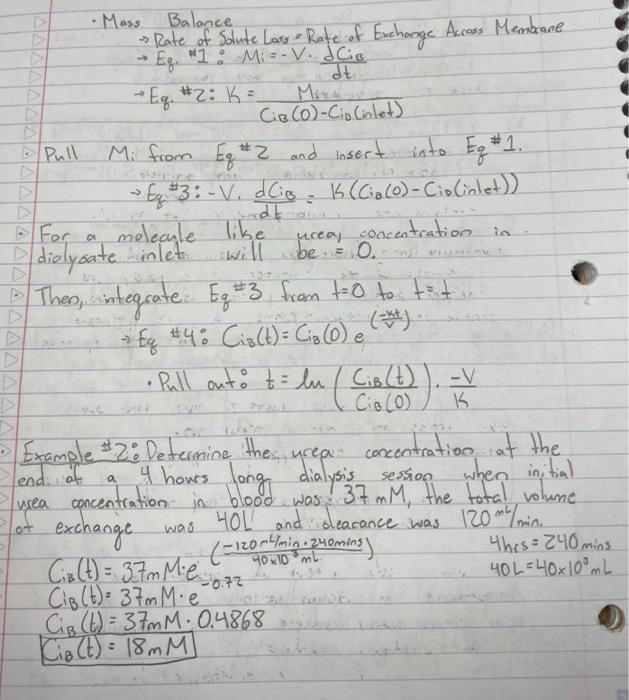 · Mass Balance
→ Rate of Solute Loss = Rate of Exchange Across Membrane
→ Eq. #1: Mi = -V. dCiB/dt
→ Eq. #2: K = Mi / CiB(0)-CiD(inlet)
Pull Mi from Eq #2 and insert into Eq #1.
→ Eq #3: -V. dCiB/dt = K(CiB(0)-CiD(inlet))
For a molecule like urea, concentration in
dialysate inlet will be = 0.
Then, integrate Eq #3 from t=0 to t=t
→ Eq #4: CiB(t) = CiB(0) e^(-Kt/V)
· Pull out: t = ln (CiB(t)/CiB(0)) · -V/K
Example #2: Determine the urea concentration at the
end of a 4 hours long dialysis session when initial
urea concentration in blood was 37 mM, the total volume
of exchange was 40L and clearance was 120 mL/min.
CiB(t) = 37mM·e^(-120mL/min·240mins / 40x10³mL)
4hrs = 240 mins
40L = 40x10³mL
CiB(t) = 37mM·e^-0.72
CiB(t) = 37mM·0.4868
CiB(t) = 18mM